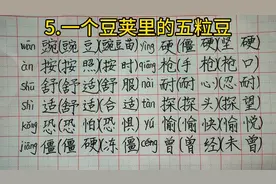 5.一个豆荚里的五粒豆
wān豌(豌豆)(豌豆苗)yìng硬(僵硬)(坚硬)
àn按(按照)(按时)qiāng枪(手枪)(枪口)
shū舒(舒适)(舒服)nài耐(耐心)(忍耐)
shì适(舒适)(合适)tàn探(探头)(探望)
kǒng恐(恐怕)(恐惧)yú愉(愉快)(愉悦)
jiāng僵(僵硬)(冻僵)céng曾(曾经)(未曾)